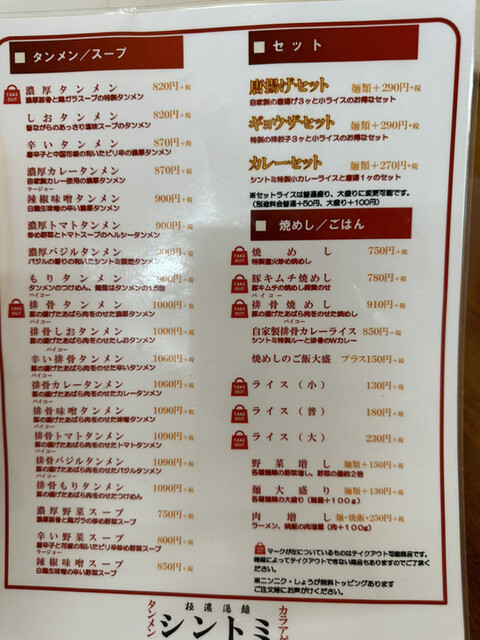 タンメン／スープ
TAKE OUT
濃厚タンメン 820円+税
濃厚豚骨と鶏ガラスープの特製タンメン
しおタンメン 820円+税
昔ながらのあっさり塩味スープのタンメン
辛いタンメン 870円+税
唐辛子と中国花椒の利いたピリ辛の濃厚タンメン
濃厚カレータンメン 870円+税
自家製カレー使用の濃厚タンメン
ラージョー
辣椒味噌タンメン 900円+税
白麹生味噌の辛い濃厚タンメン
濃厚トマトタンメン 900円+税
炒め野菜とトマトスープのヘルシータンメン
濃厚バジルタンメン
バジルの香りの利いたシントミ限定タンメン
もりタンメン
タンメンのつけめん、麺量はタンメンの1.5倍
パイコー
TAKE OUT
排骨タンメン 1000円+税
豚の揚げたあばら肉をのせた濃厚タンメン
パイコー
排骨しおタンメン 1000円+税
豚の揚げたあばら肉をのせたしおタンメン
パイコー
辛い排骨タンメン 1060円+税
豚の揚げたあばら肉をのせた辛いタンメン
パイコー
排骨カレータンメン 1060円+税
豚の揚げたあばら肉をのせたカレータンメン
パイコー
排骨味噌タンメン 1090円+税
豚の揚げたあばら肉をのせた味噌タンメン
パイコー
排骨トマトタンメン 1090円+税
豚の揚げたあばら肉をのせたトマトタンメン
パイコー
排骨バジルタンメン 1090円+税
豚の揚げたあばら肉をのせたバジルタンメン
パイコー
排骨もりタンメン 1090円+税
豚の揚げたあばら肉をのせたつけめん
濃厚野菜スープ 750円+税
濃厚豚骨と鶏ガラの炒め野菜スープ
辛い野菜スープ 800円+税
唐辛子と花椒の利いたピリ辛炒め野菜スープ
ラージョー
辣椒味噌スープ 850円+税
白麹生味噌の辛い野菜スープ
セット
唐揚げセット 麺類+290円+税
自家製の唐揚げ3ヶと小ライスのお得なセット
ギョウザセット 麺類+290円+税
特製の棒餃子3ヶと小ライスのお得なセット
カレーセット 麺類+270円+税
シントミ特製小カレーライスと唐揚1ケのセット
※セットライスは普通盛り、大盛りに変更可能です。
（別途料金普通+50円、大盛り+100円）
焼めし／ごはん
TAKE OUT
焼めし 750円+税
特製直火炒め焼めし
TAKE OUT
豚キムチ焼めし 780円+税
豚キムチの焼めし豚賛のせ
パイコー
TAKE OUT
排骨焼めし 910円+税
豚の揚げたあばら肉をのせた焼めし
パイコー
自家製排骨カレーライス 850円+税
シントミ特製ルーと排骨のWカレー
焼めしのご飯大盛 プラス150円+税
TAKE OUT
ライス（小） 130円+税
TAKE OUT
ライス（普） 180円+税
TAKE OUT
ライス（大） 230円+税
野菜増し 麺類+150円+税
各種麺類の野菜増し、野菜の量約2倍
麺大盛り 麺類+130円+税
各種麺類の大盛り（麺量+100g）
肉増し 麺・焼飯+250円+税
ラーメン、焼飯の肉増量（肉+100g）
TAKE OUT
マークが左についているものはテイクアウト可能商品です。
時間によってテイクアウトできない商品もありますのでご了承ください。
※ニンニク・しょうが無料トッピングあります
ご注文時にお声がけください。
極濃湯麺
タンメン
シントミ
カラアゲ